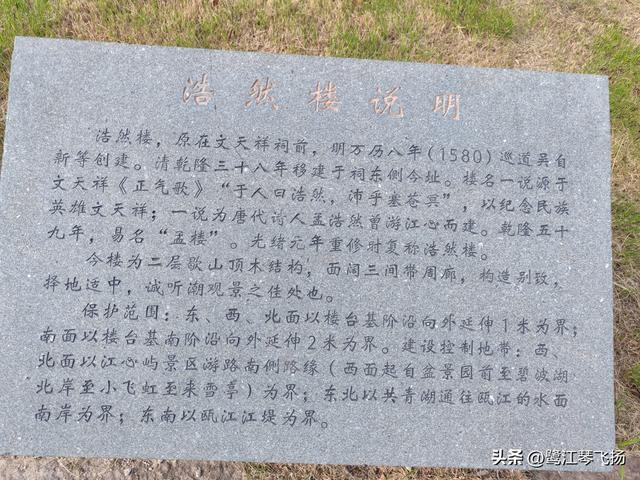 浩然楼说明
浩然楼，原在文天祥祠前，明万历八年(1580)巡道吴自
新等创建。清乾隆三十八年移建于祠东侧今址。楼名一说源于
文天祥《正气歌》“于人曰浩然，沛乎塞苍冥”，以纪念民族
英雄文天祥；一说为唐代诗人孟浩然曾游江心而建。乾隆五十
九年，易名“孟楼”。光绪元年重修时复称浩然楼。
今楼为二层歇山顶木结构，面阔三间带周廊，构造别致，
择地适中，诚听潮观景之佳处也。
保护范围：东、西、北面以楼台基阶沿向外延伸1米为界；
南面以楼台基南阶沿向外延伸2米为界。建设控制地带：西、
北面以江心屿景区游路南侧路缘（西面起自盆景园前至碧波湖
北岸至小飞虹至来雪亭）为界；东北以共青湖通往瓯江的水面
南岸为界；东南以瓯江江堤为界。
头条 @鹭江琴飞扬